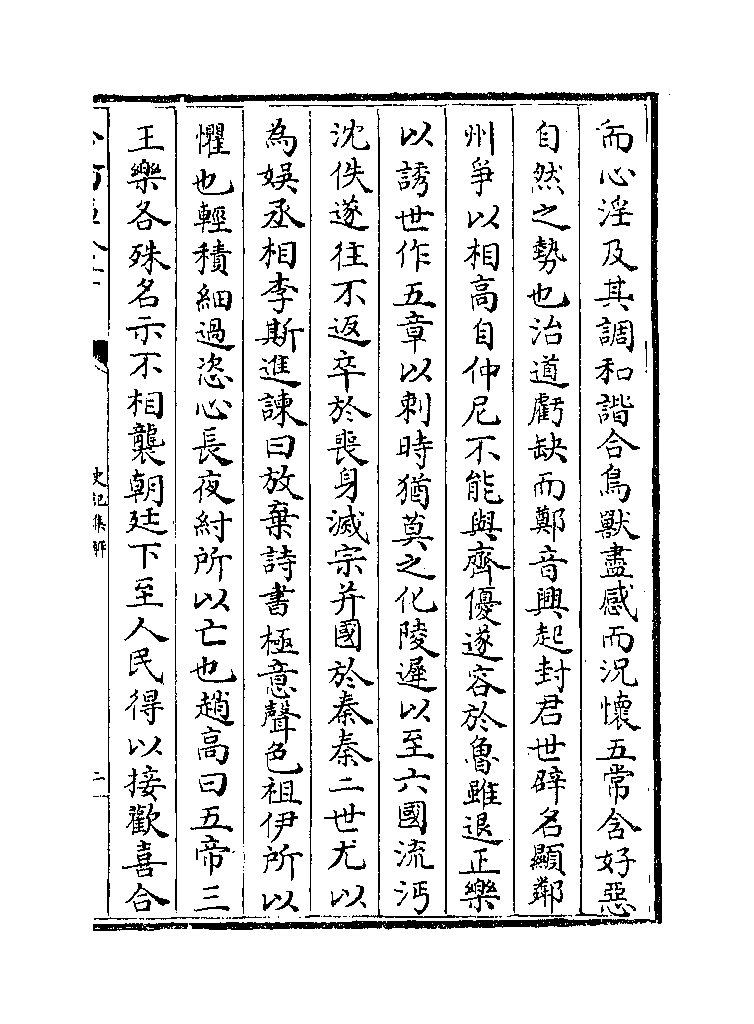 而心淫及其調和諧合鳥獸盡感而況懷五常含好惡
自然之勢也治道虧缺而鄭音興起封君世辟名顯鄰
州爭以相高自仲尼不能與齊優遂容於魯雖退正樂
以誘世作五章以刺時猶莫之化陵遲以至六國流沔
沈佚遂往不返卒於喪身滅宗并國於秦秦二世尤以
為娛丞相李斯進諫曰放棄詩書極意聲色祖伊所以
懼也輕積細過恣心長夜紂所以亡也趙高曰五帝三
王樂各殊名示不相襲朝廷下至人民得以接歡喜合
史記集解
二